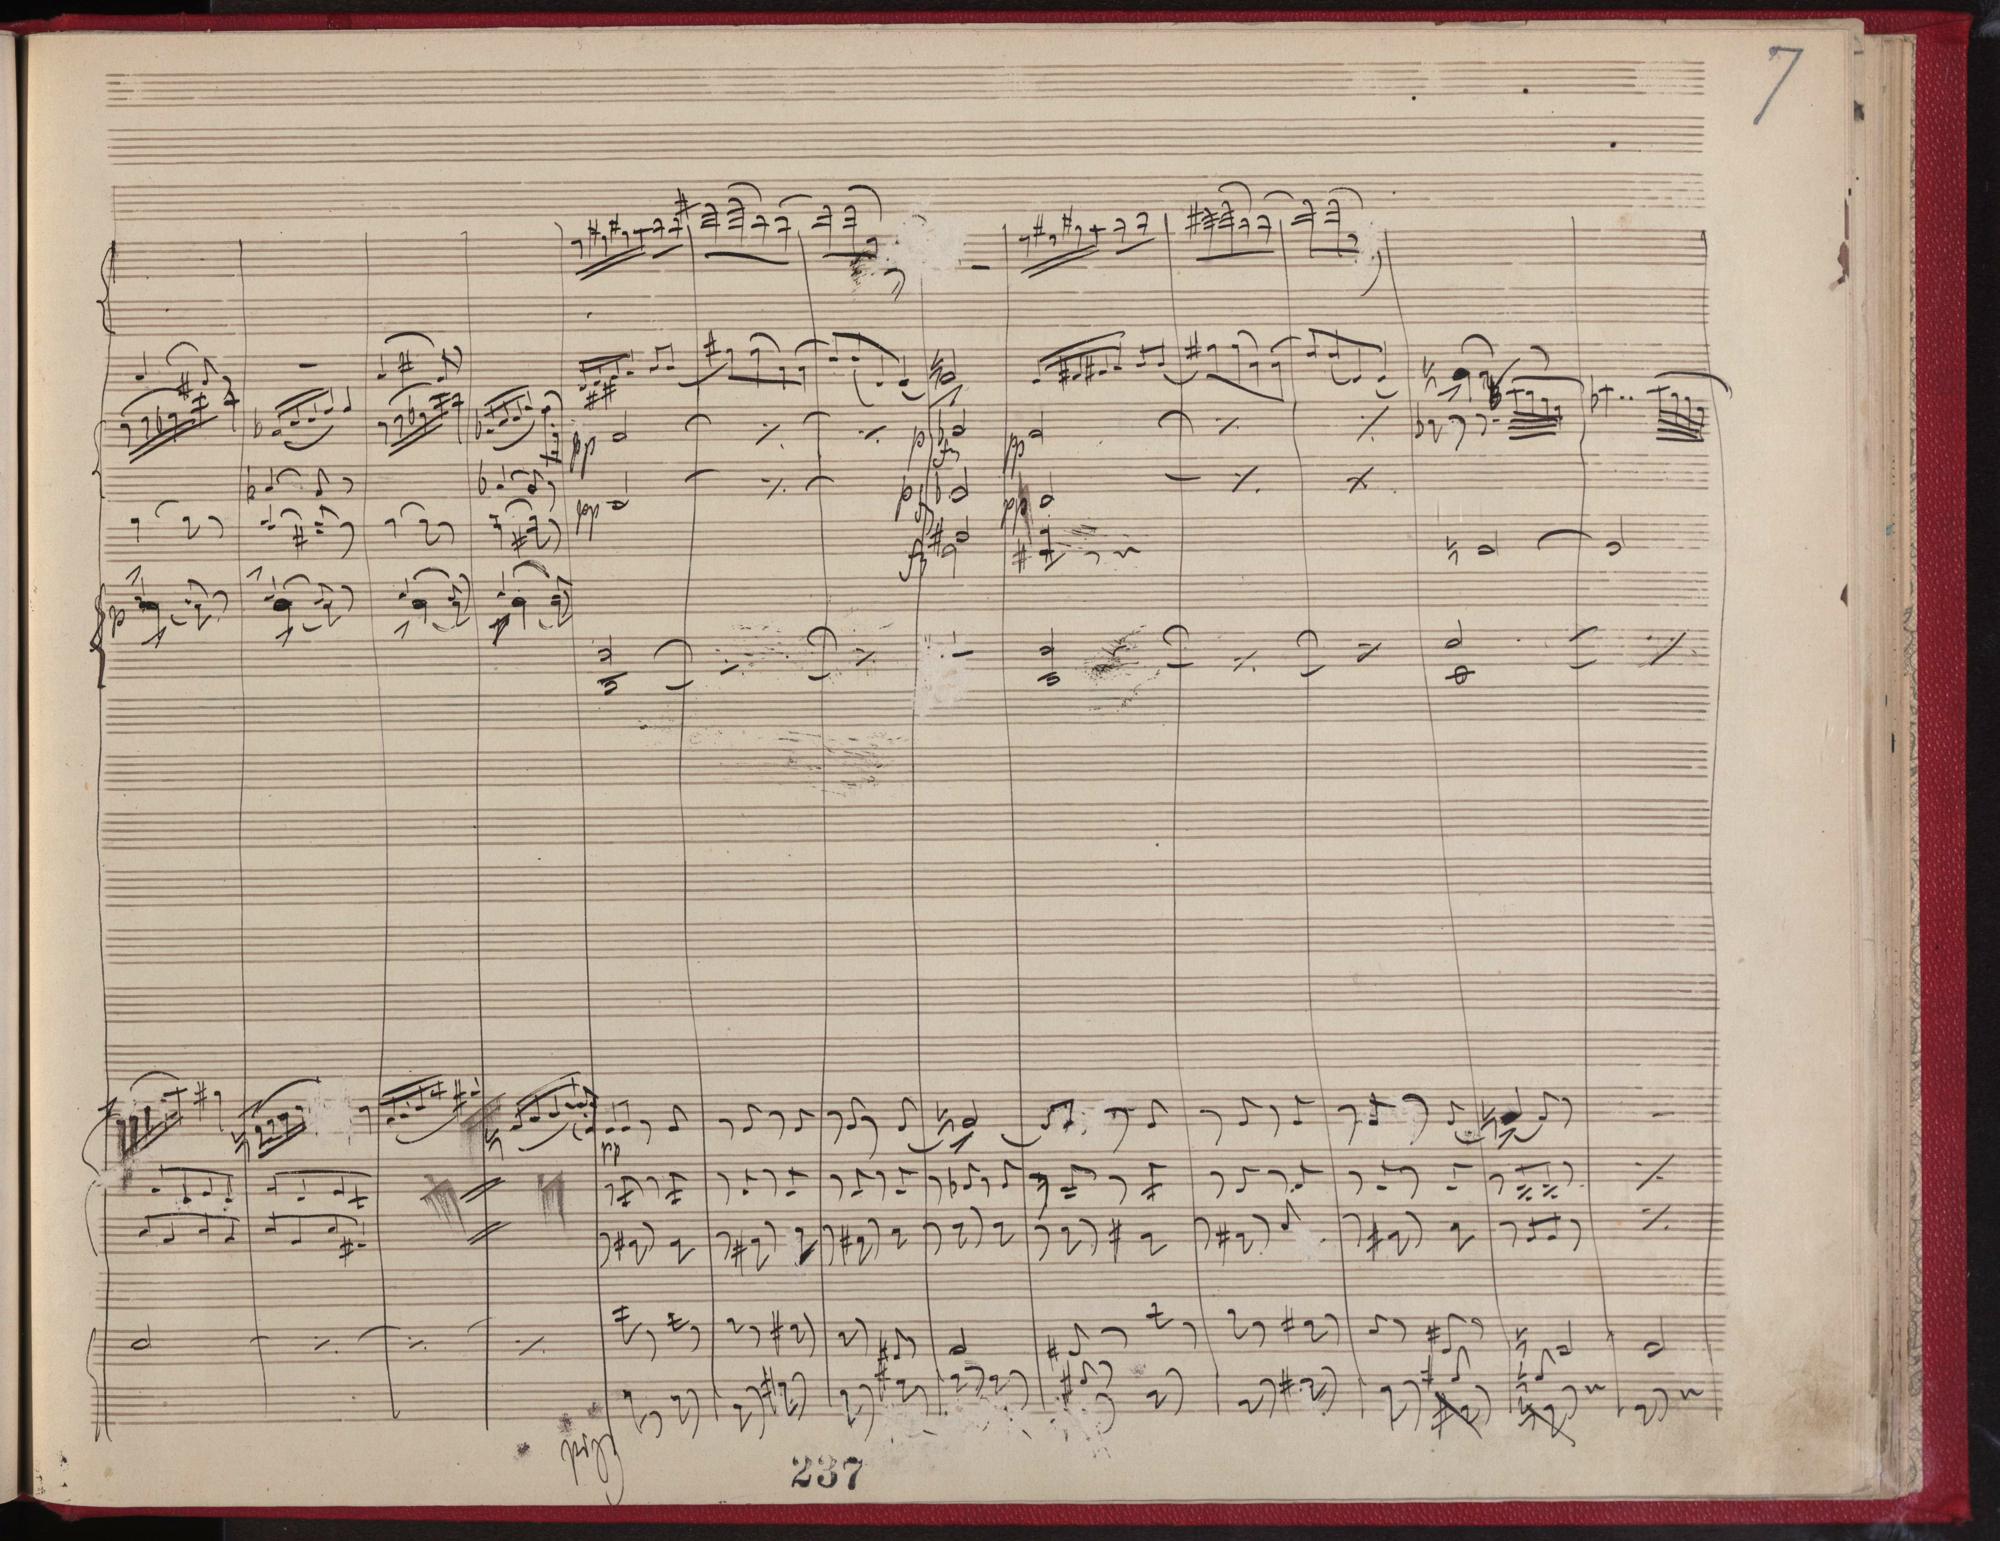 7
pp
p
pp
fz
pp
p
pp
fz
p
pp
pizz
237